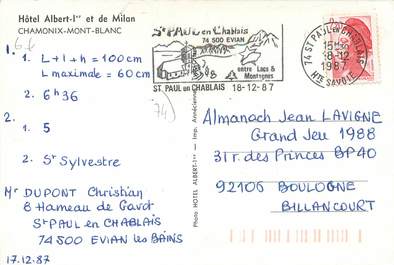 Hôtel Albert-1er et de Milan
CHAMONIX-MONT-BLANC
6 €
1. L + l + h = 100 cm
L maximale = 60 cm
2. 6h 36
1. 5
2. St Sylvestre
Mr DUPONT Christian
8 Hameau de Gavot
St PAUL en CHABLAIS
74 500 EVIAN les BAINS
17.12.87
St PAUL en Chablais
74 500 EVIAN
entre Lacs &
Montagnes
ST. PAUL en CHABLAIS 18-12-87
74
74 ST PAUL EN CHABLAIS
18-12
1987
Hte SAVOIE
Photo HOTEL ALBERT-1er — Imp. Annécienne
Almanach Jean LAVIGNE
Grand Jeu 1988
31 r. des Princes BP 40
92106 BOULOGNE
BILLANCOURT